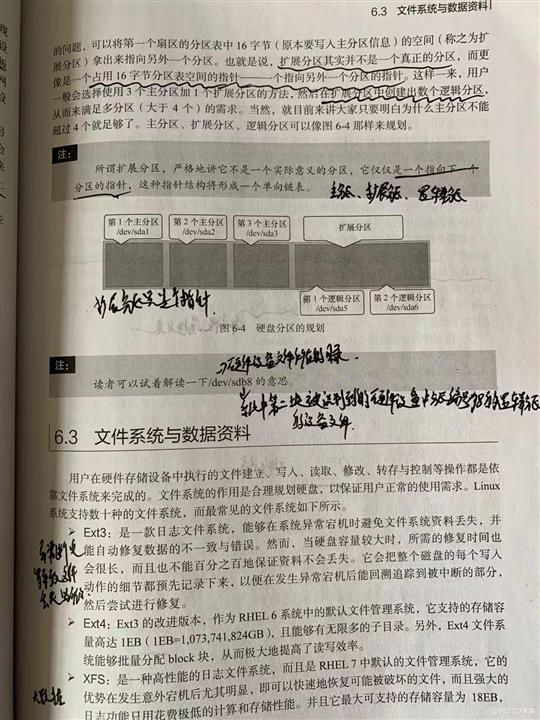 6.3 文件系统与数据资料
的问题，可以将第一个扇区的分区表中 16 字节（原本要写入主分区信息）的空间（称之为扩
展分区）拿出来指向另外一个分区。也就是说，扩展分区其实并不是一个真正的分区，而更
像是一个占用 16 字节分区表空间的指针——一个指向另外一个分区的指针。这样一来，用户
一般会选择使用 3 个主分区加 1 个扩展分区的方法，然后在扩展分区中创建出数个逻辑分区，
从而来满足多分区（大于 4 个）的需求。当然，就目前来讲大家只要明白为什么主分区不能
超过 4 个就足够了。主分区、扩展分区、逻辑分区可以像图 6-4 那样来规划。
注：
所谓扩展分区，严格地讲它不是一个实际意义的分区，它仅仅是一个指向下一个
分区的指针，这种指针结构将形成一个单向链表。
主分区、扩展分区、逻辑分区
第 1 个主分区 第 2 个主分区 第 3 个主分区 扩展分区
/dev/sda1 /dev/sda2 /dev/sda3
第 1 个逻辑分区 第 2 个逻辑分区
/dev/sda5 /dev/sda6
扩展分区是个指针
图 6-4 硬盘分区的规划
注：
读者可以试着解读一下/dev/sdb8 的意思。
6.3 文件系统与数据资料
用户在硬件存储设备中执行的文件建立、写入、读取、修改、转存与控制等操作都是依
靠文件系统来完成的。文件系统的作用是合理规划硬盘，以保证用户正常的使用需求。Linux
系统支持数十种的文件系统，而最常见的文件系统如下所示。
➢ Ext3：是一款日志文件系统，能够在系统异常宕机时避免文件系统资料丢失，并
能自动修复数据的不一致与错误。然而，当硬盘容量较大时，所需的修复时间也
会很长，而且也不能百分之百地保证资料不会丢失。它会把整个磁盘的每个写入
动作的细节都预先记录下来，以便在发生异常宕机后能回溯追踪到被中断的部分，
然后尝试进行修复。
➢ Ext4：Ext3 的改进版本，作为 RHEL 6 系统中的默认文件管理系统，它支持的存储容
量高达 1EB（1EB=1,073,741,824GB），且能够有无限多的子目录。另外，Ext4 文件系
统能够批量分配 block 块，从而极大地提高了读写效率。
➢ XFS：是一种高性能的日志文件系统，而且是 RHEL 7 中默认的文件管理系统，它的
优势在发生意外宕机后尤其明显，即可以快速地恢复可能被破坏的文件，而且强大的
日志功能只用花费极低的计算和存储性能。并且它最大可支持的存储容量为 18EB，
@51CTO博客